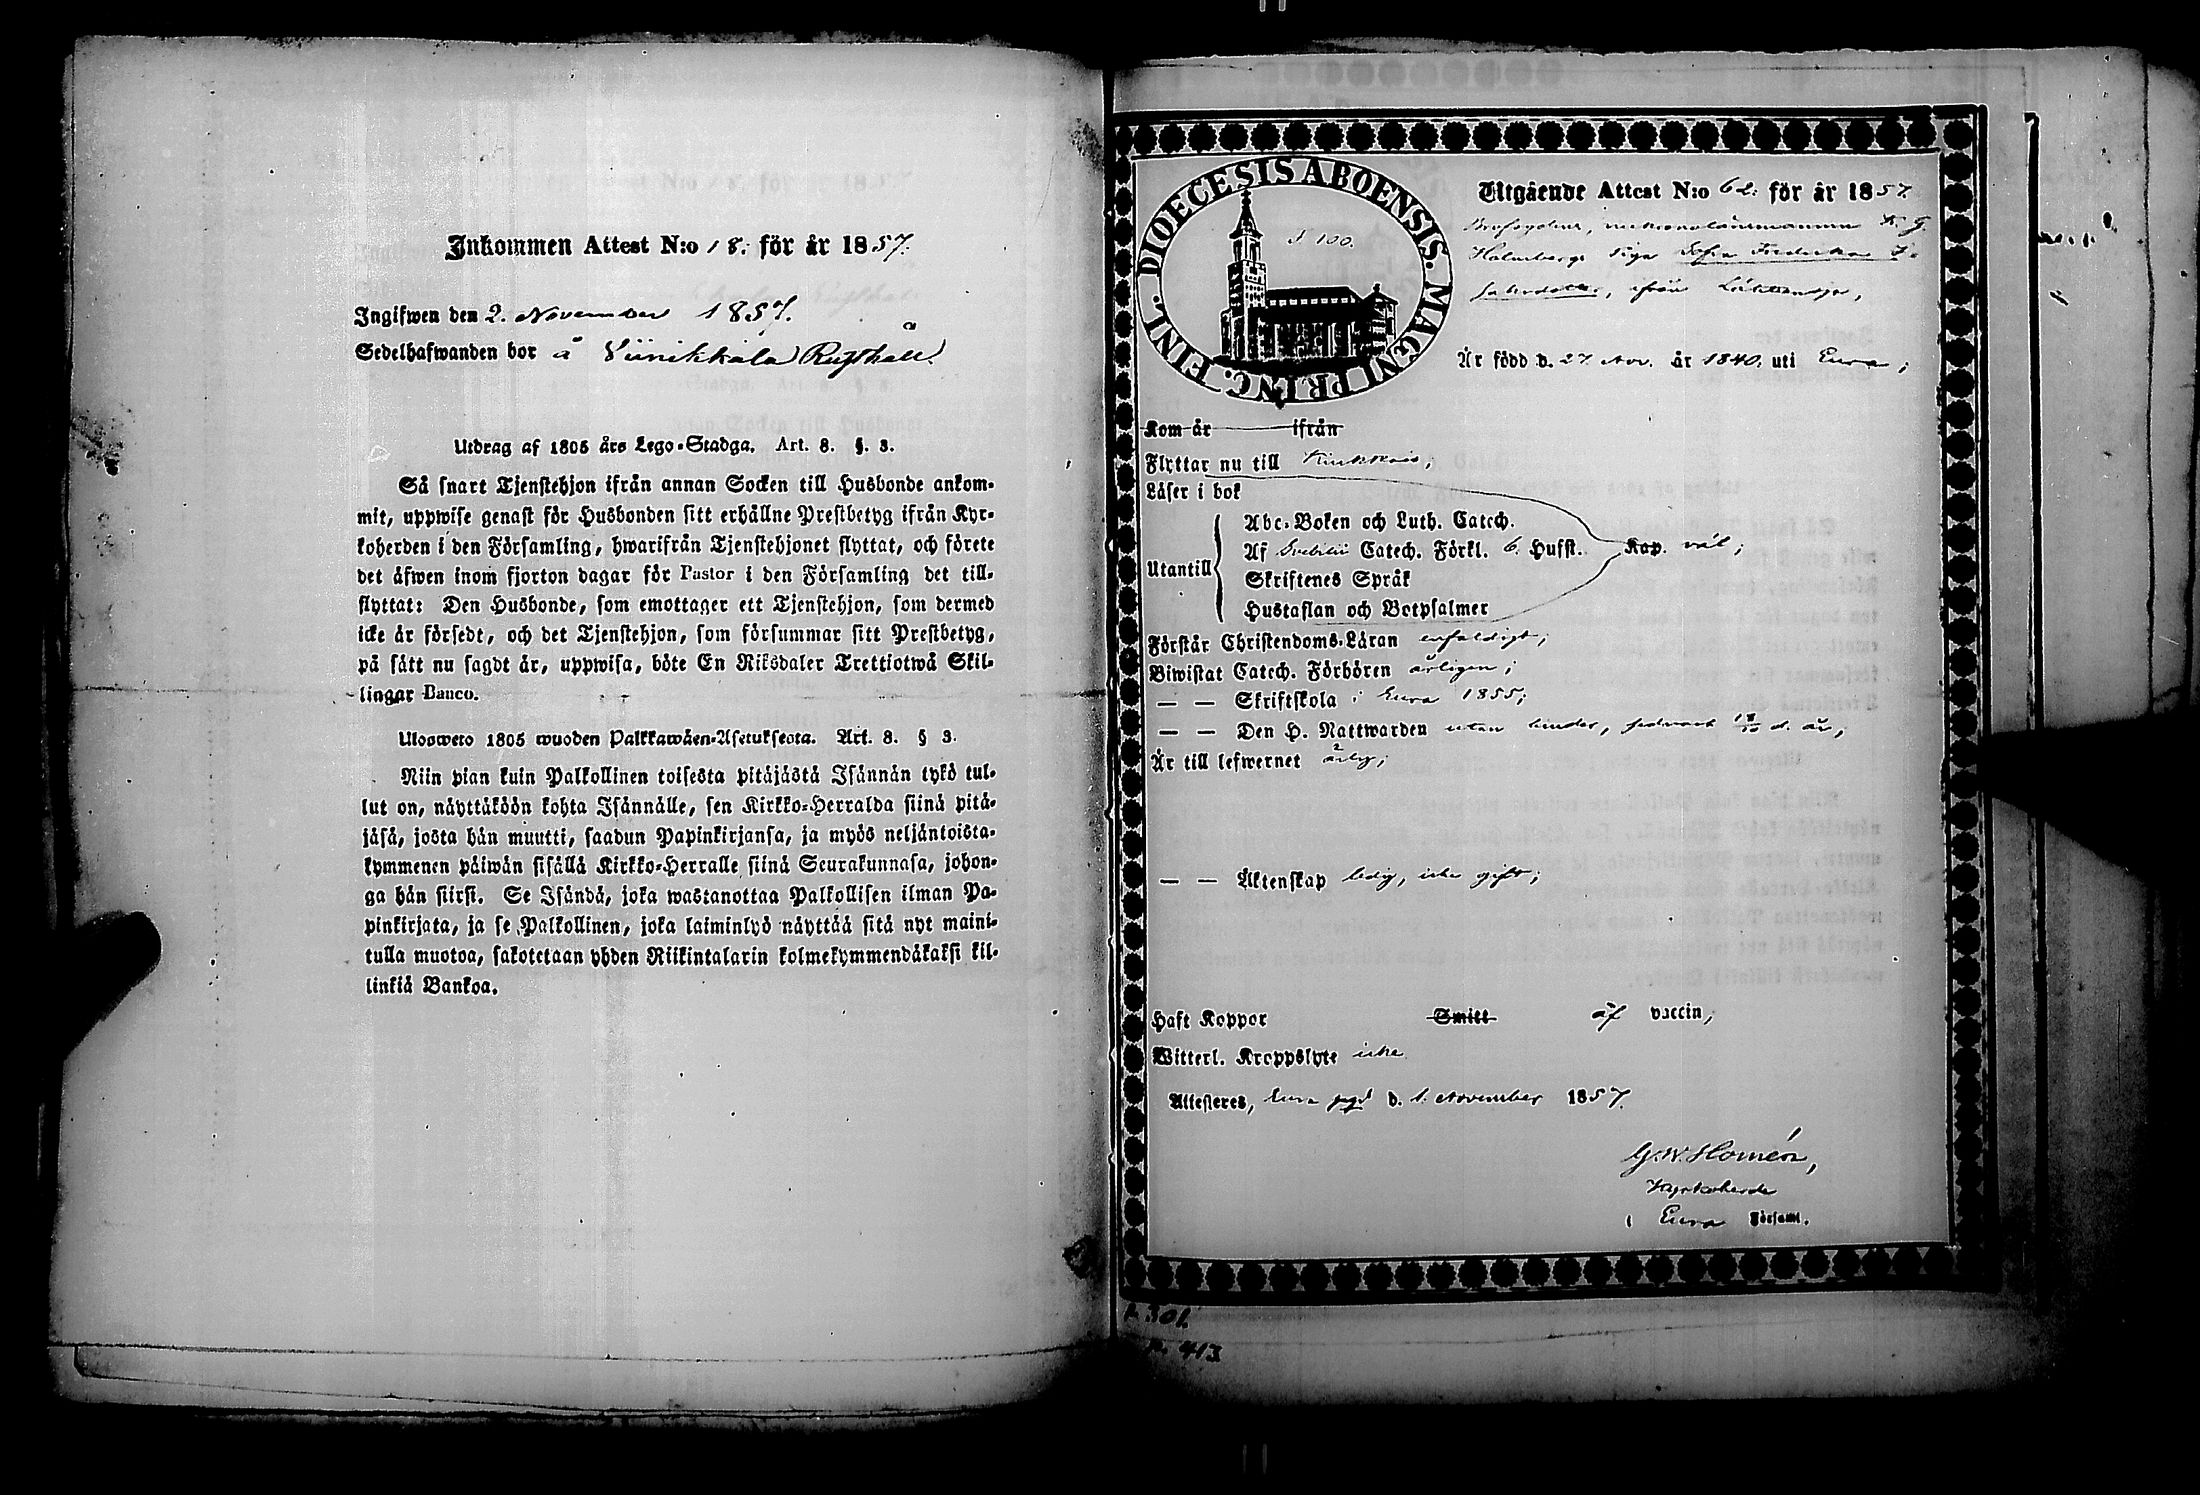 Inkommen Attest N:o 18. för år 1857.
Ingifwen den 2. November 1857.
Sedelhafwanden bor å Viinikkala Rusthåll.
Utdrag af 1805 års Lego-Stadga. Art. 8. §. 3.
Så snart Tjenstehjon ifrån annan Socken till Husbonde ankom-
mit, uppwise genast för Husbonden sitt erhållne Prestbetyg ifrån Kyr-
koherden i den Församling, hwarifrån Tjenstehjonet flyttat, och förete
det äfwen inom fjorton dagar för Pastor i den Församling det till-
flyttat: Den Husbonde, som emottager ett Tjenstehjon, som dermed
icke är försedt, och det Tjenstehjon, som försummar sitt Prestbetyg,
på sätt nu sagdt är, uppwisa, böte En Riksdaler Trettiotwå Skil-
lingar Banco.
Ulosweto 1805 wuoden Palkkawäen-Asetuksesta. Art. 8. § 3.
Niin pian kuin Palkollinen toisesta pitäjästä Isännän tykö tul-
lut on, näyttäköön kohta Isännälle, sen Kirkko-Herralda siinä pitä-
jäsä, josta hän muutti, saadun Papinkirjansa, ja myös neljäntoista-
kymmenen päiwän sisällä Kirkko-Herralle siinä Seurakunnasa, johon-
ga hän siirsi. Se Isändä, joka wastanottaa Palkollisen ilman Pa-
pinkirjata, ja se Palkollinen, joka laiminlyö näyttää sitä nyt maini-
tulla muotoa, sakotetaan yhden Riikintalarin kolmekymmendäkaksi kil-
linkiä Bankoa.
DIOECESIS ABOENSIS. MAGNI PRINC. FINL.
100.
Utgående Attest N:o 62. för år 1857.
Holmbergs Piga Sofia Fredrika
ifrån
Är född d. 27. Nov. år 1840. uti Eura;
Kom år ifrån
Flyttar nu till Kiukais,
Läser i bok
Abc-Boken och Luth. Catech.
Utantill Af Svebilii Catech. Förkl. 6. Hufst. Kap. väl;
Skriftenes Språk
Hustaflan och Botpsalmer
Förstår Christendoms-Läran enfaldigt;
Biwistat Catech. Förhören årligen;
— — Skriftskola i Eura 1855;
— — Den H. Nattwarden utan hinder, sednast d. år;
Är till lefwernet ärlig;
— — Äktenskap ledig, icke gift;
Haft Koppor Smitt af vaccin;
Witterl. Kroppslyte icke
Attesteras, Eura pgd d. 1. November 1857.
G. W. Homén,
Kyrkoherde
i Eura Församl.
p. 301.
p. 413